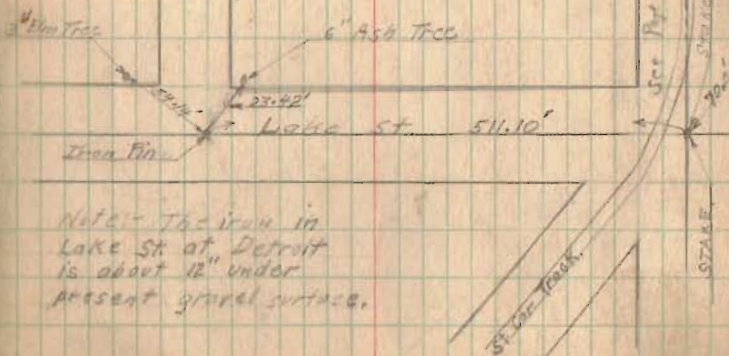 3" Elm Tree
6" Ash Tree
54.14'
23.42'
Lake St. 511.10'
Iron Pin
See
Stake
70
STAKE.
St. Car Track.
Note:- The iron in
Lake St. at Detroit
is about 12" under
present gravel surface.